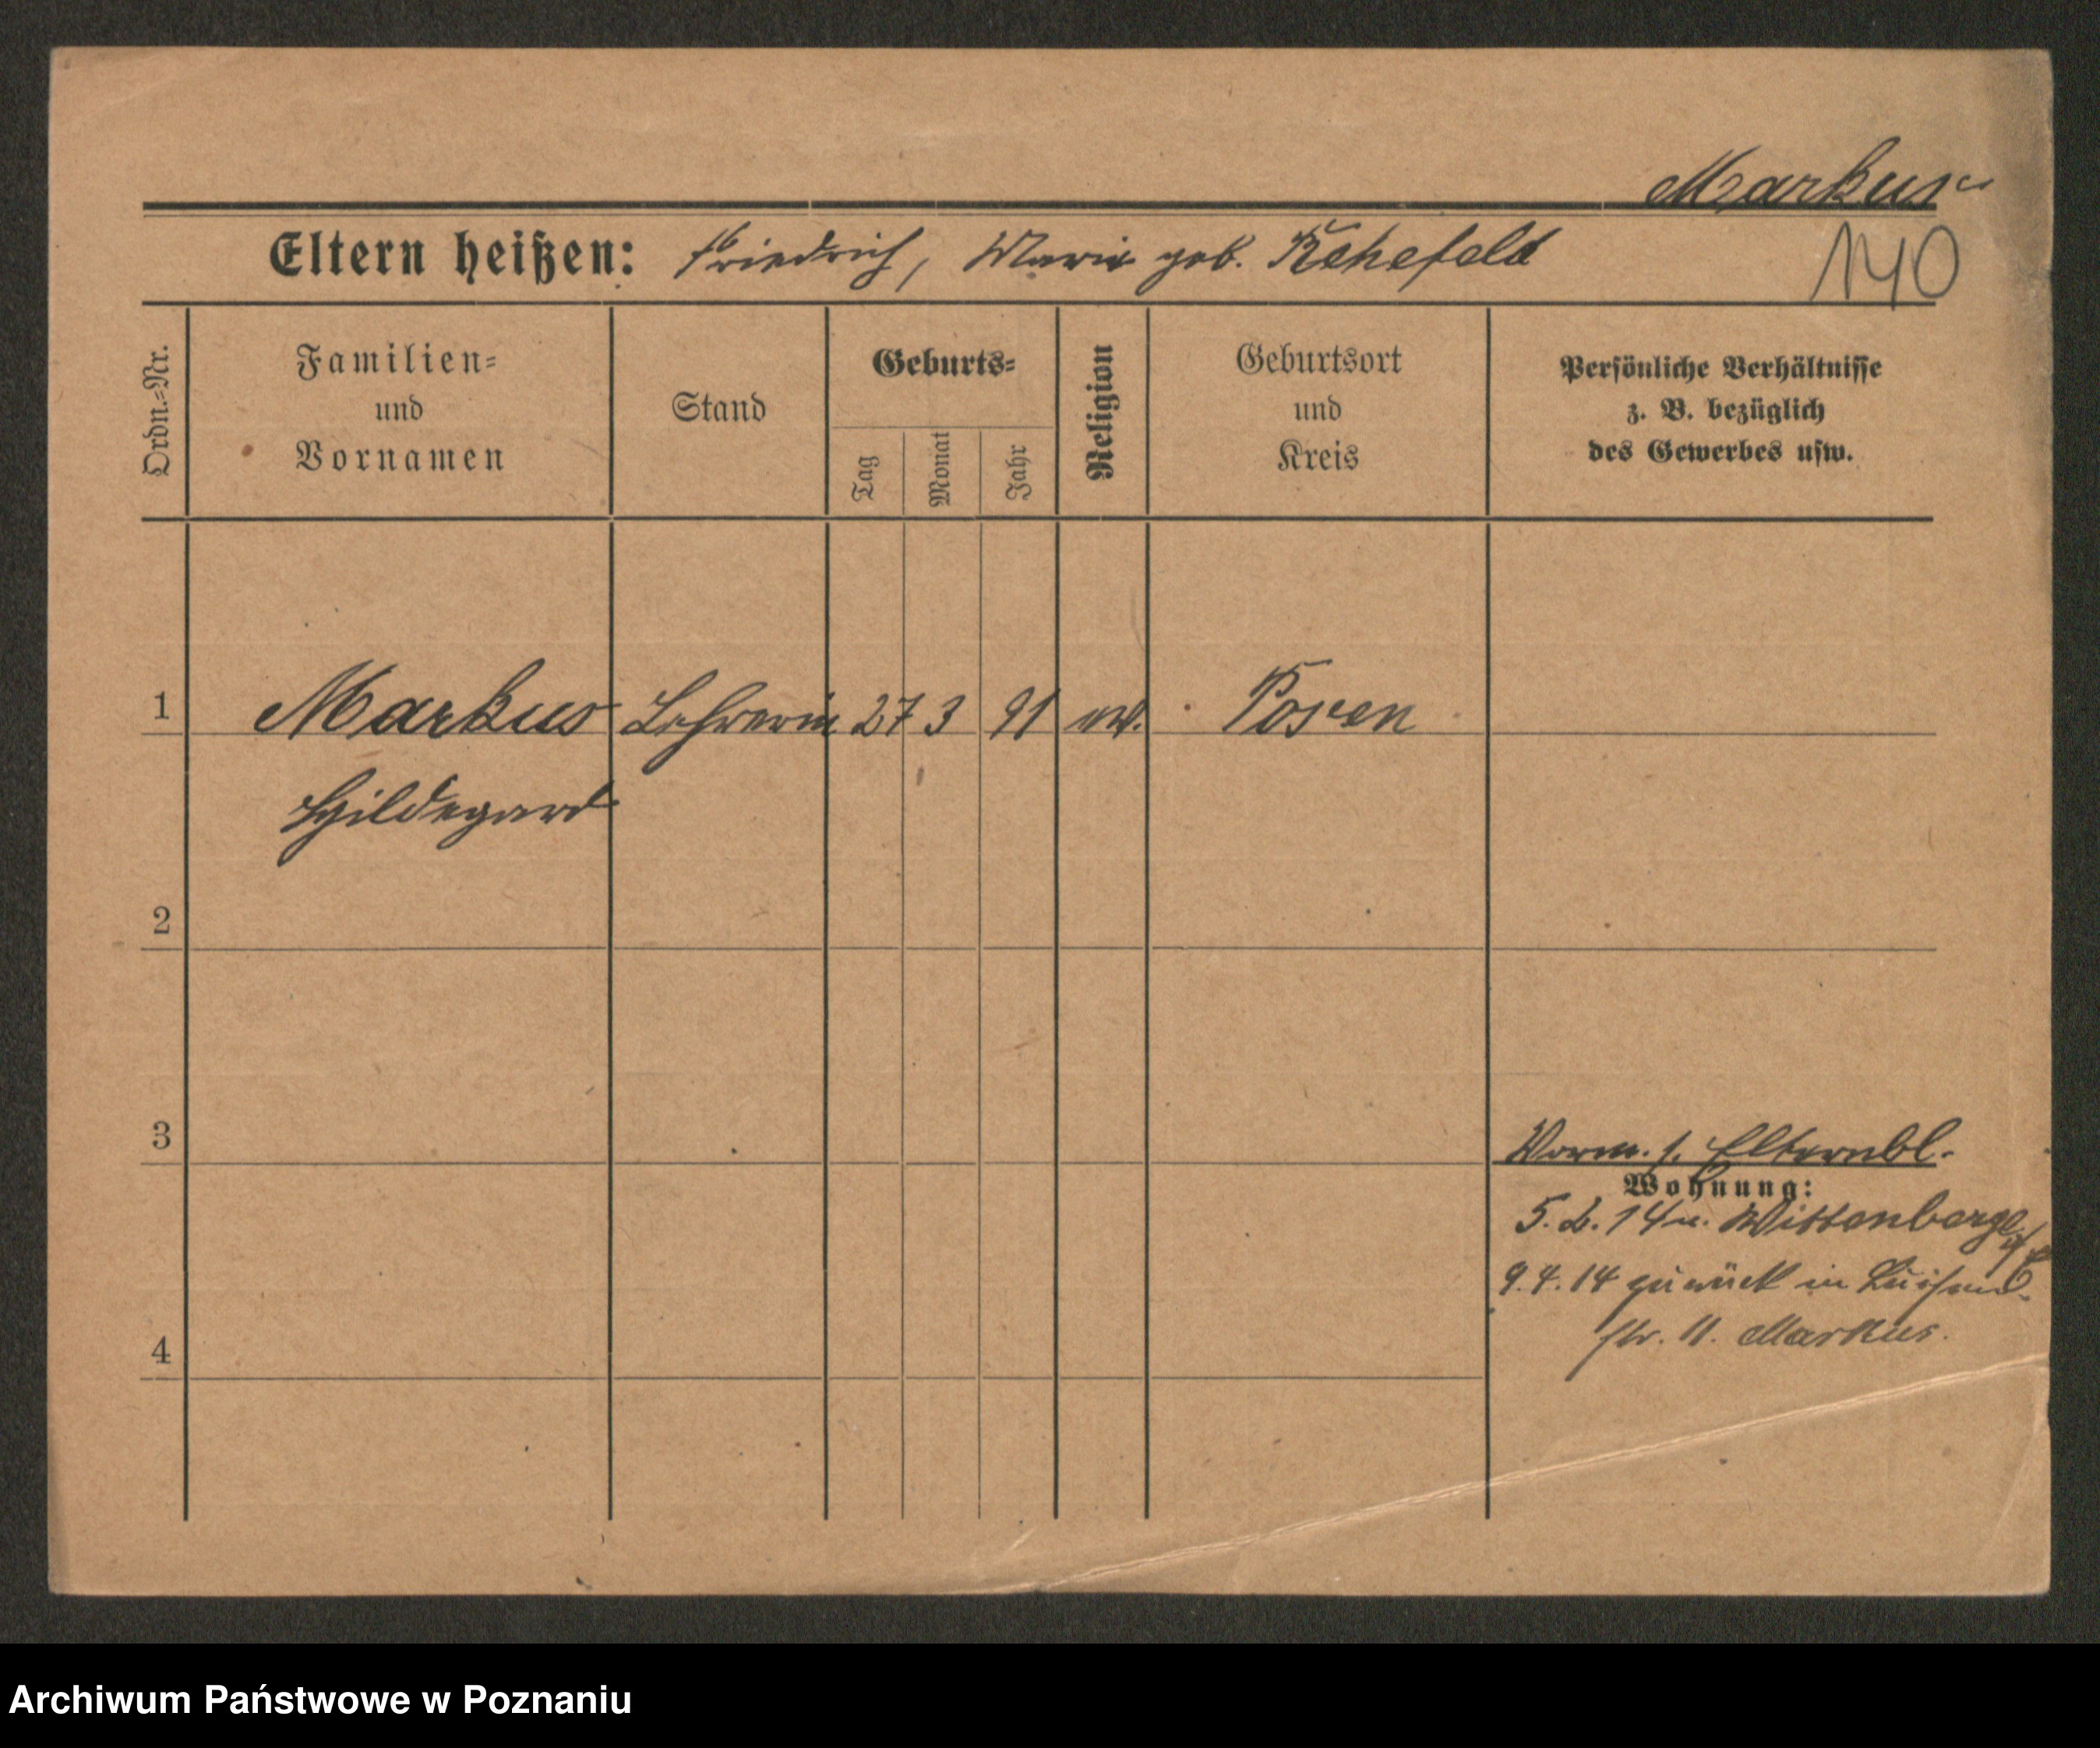 Markus
Eltern heißen: Friedrich, Marie geb. Rehefeld
140
Ordn.=Nr.
Familien=
und
Vornamen
Stand
Geburts=
Tag
Monat
Jahr
Religion
Geburtsort
und
Kreis
Persönliche Verhältnisse
z. B. bezüglich
des Gewerbes usw.
1 Markus Lehrerin 27 3 91 ev. Posen
Hildegard
2
3
Vorm. s. Elternbl.
Wohnung:
5. 2. 14 n. Wittenberge
9. 4. 14 zurück in Luisen
str. 11. Markus.
4
Archiwum Państwowe w Poznaniu